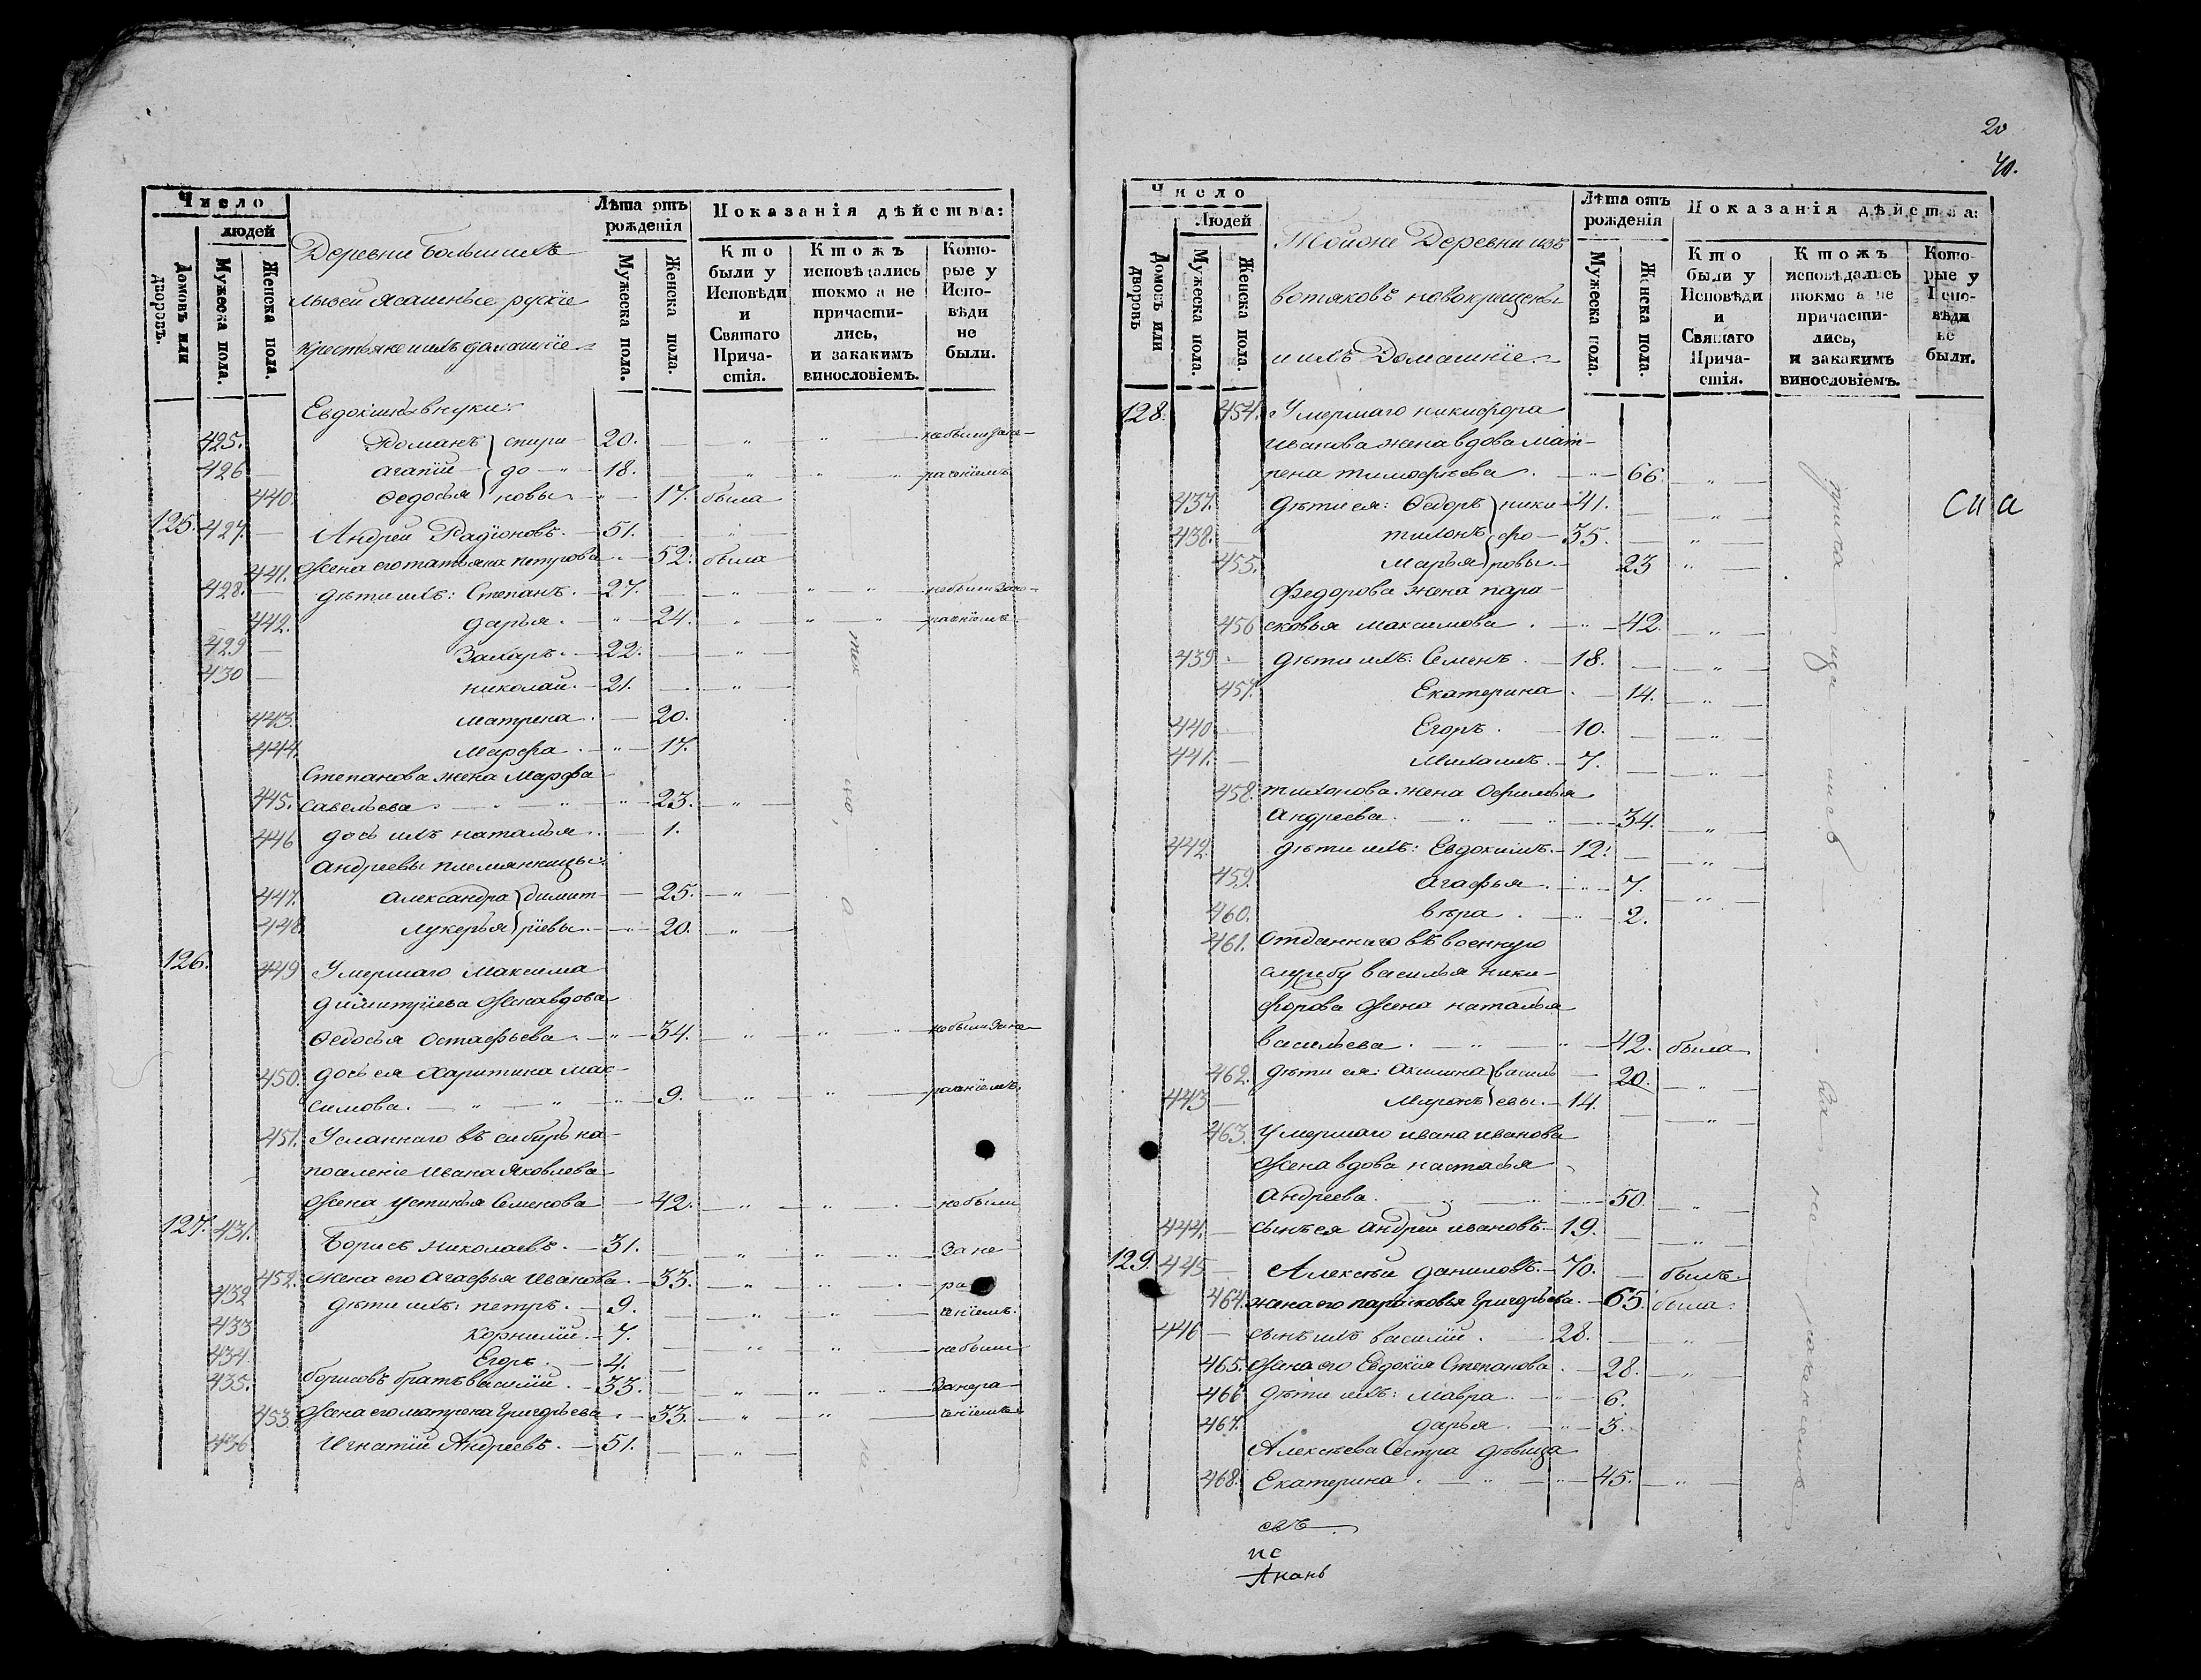 Число
людей
Домовъ или дворовъ.
Мужеска пола.
Женска пола.
Деревни большихъ
лызей ясашные руские
крестьяне и ихъ домашние
Лѣта отъ рожденія
Мужеска пола.
Женска пола.
Показанія дѣйства:
Кто были у Исповѣди и Святаго Причастія.
Ктожъ исповѣдались токмо а не причастились, и закакимъ винословіемъ.
Которые у Исповѣди не были.
Евдокимовы внуки:
425. Романъ спири- 20. не были за не-
426 агапiй до 18. рачениемъ
440. Ѳедосья новы 17. была
125. 427. Андрей Радионовъ. 51.
441. жена его татьяна петрова 52. была
428. дѣти ихъ: Степанъ. 27. не были за не-
442. дарья. 24. рачениемъ
429 Захаръ. 22.
430 николай. 21.
443. матрена. 20.
444. Марфа. 17.
Степанова жена Марфа
445. савельева. 23.
446 дочь ихъ наталья 1.
андреевы племянницы
447. александра димит- 25.
448. лукерья рiевы 20.
126. 449 Умершаго Максима
димитриева жена вдова
Ѳедосья остафьева. 34. не были за не-
450. дочь ея Харитина мак-
симова. 9. рачениемъ.
451. Усланнаго въ сибирь на
поселение ивана яковлева
жена устинья Семенова 42. не были
127. 431. Борисъ николаевъ. 31. За не
452. жена его агафья иванова. 33. ра
432 дѣти ихъ: петръ. 9. чениемъ.
433 корнилий. 7. не были
434. Егоръ. 4.
435. борисовъ братъ василий. 33. За нера-
453. жена его матрена григорьева 33. чениемъ
436 Игнатий Андреевъ. 51.
20
40.
Число
Людей
Домовъ или дворовъ
Мужеска пола.
Женска пола.
Тойоне Деревни изъ
вотяковъ новокрещены
и ихъ Домашние
Лѣта отъ рожденія
Мужеска пола.
Женска пола.
Показанія дѣйства:
Кто были у Исповѣди и Святаго Причастія.
Ктожъ исповѣдались токмо а не причастились, и закакимъ винословіемъ.
Которые у Исповѣди не были.
128. 454. Умершаго никифора
иванова жена вдова мат-
рена тимофеева. 66.
437. дѣти ея: Ѳедоръ ники- 41.
438. тихонъ фо- 35.
455. марья ровы. 23
Федорова жена пара-
456 сковья максимова. 42.
439. дѣти ихъ: Семенъ. 18.
457. Екатерина. 14.
440 Егоръ. 10.
441. Михаилъ. 7.
458. тихонова жена Офимья
Андреева. 34.
442. дѣти ихъ: Евдокимъ. 12.
459. агафья. 7.
460. вѣра. 2.
461. Отданнаго въ военную
службу василья ники-
форова жена наталья
васильева. 42. была
462. дѣти ея: акилина василь 20.
443 Миронъ евы. 14.
463. Умершаго ивана иванова
жена вдова настасья
андреева. 50.
444. сынъ ея андрей ивановъ. 19.
129. 445 Алексѣй даниловъ. 70. былъ.
464. жена его парасковья григорьева. 65. была.
446 сынъ ихъ василий. 28.
465. жена его Евдокия Степанова. 28.
466 дѣти ихъ: мавра. 6.
467. дарья. 3.
Алексѣева Сестра дѣвица
468. Екатерина. 45.